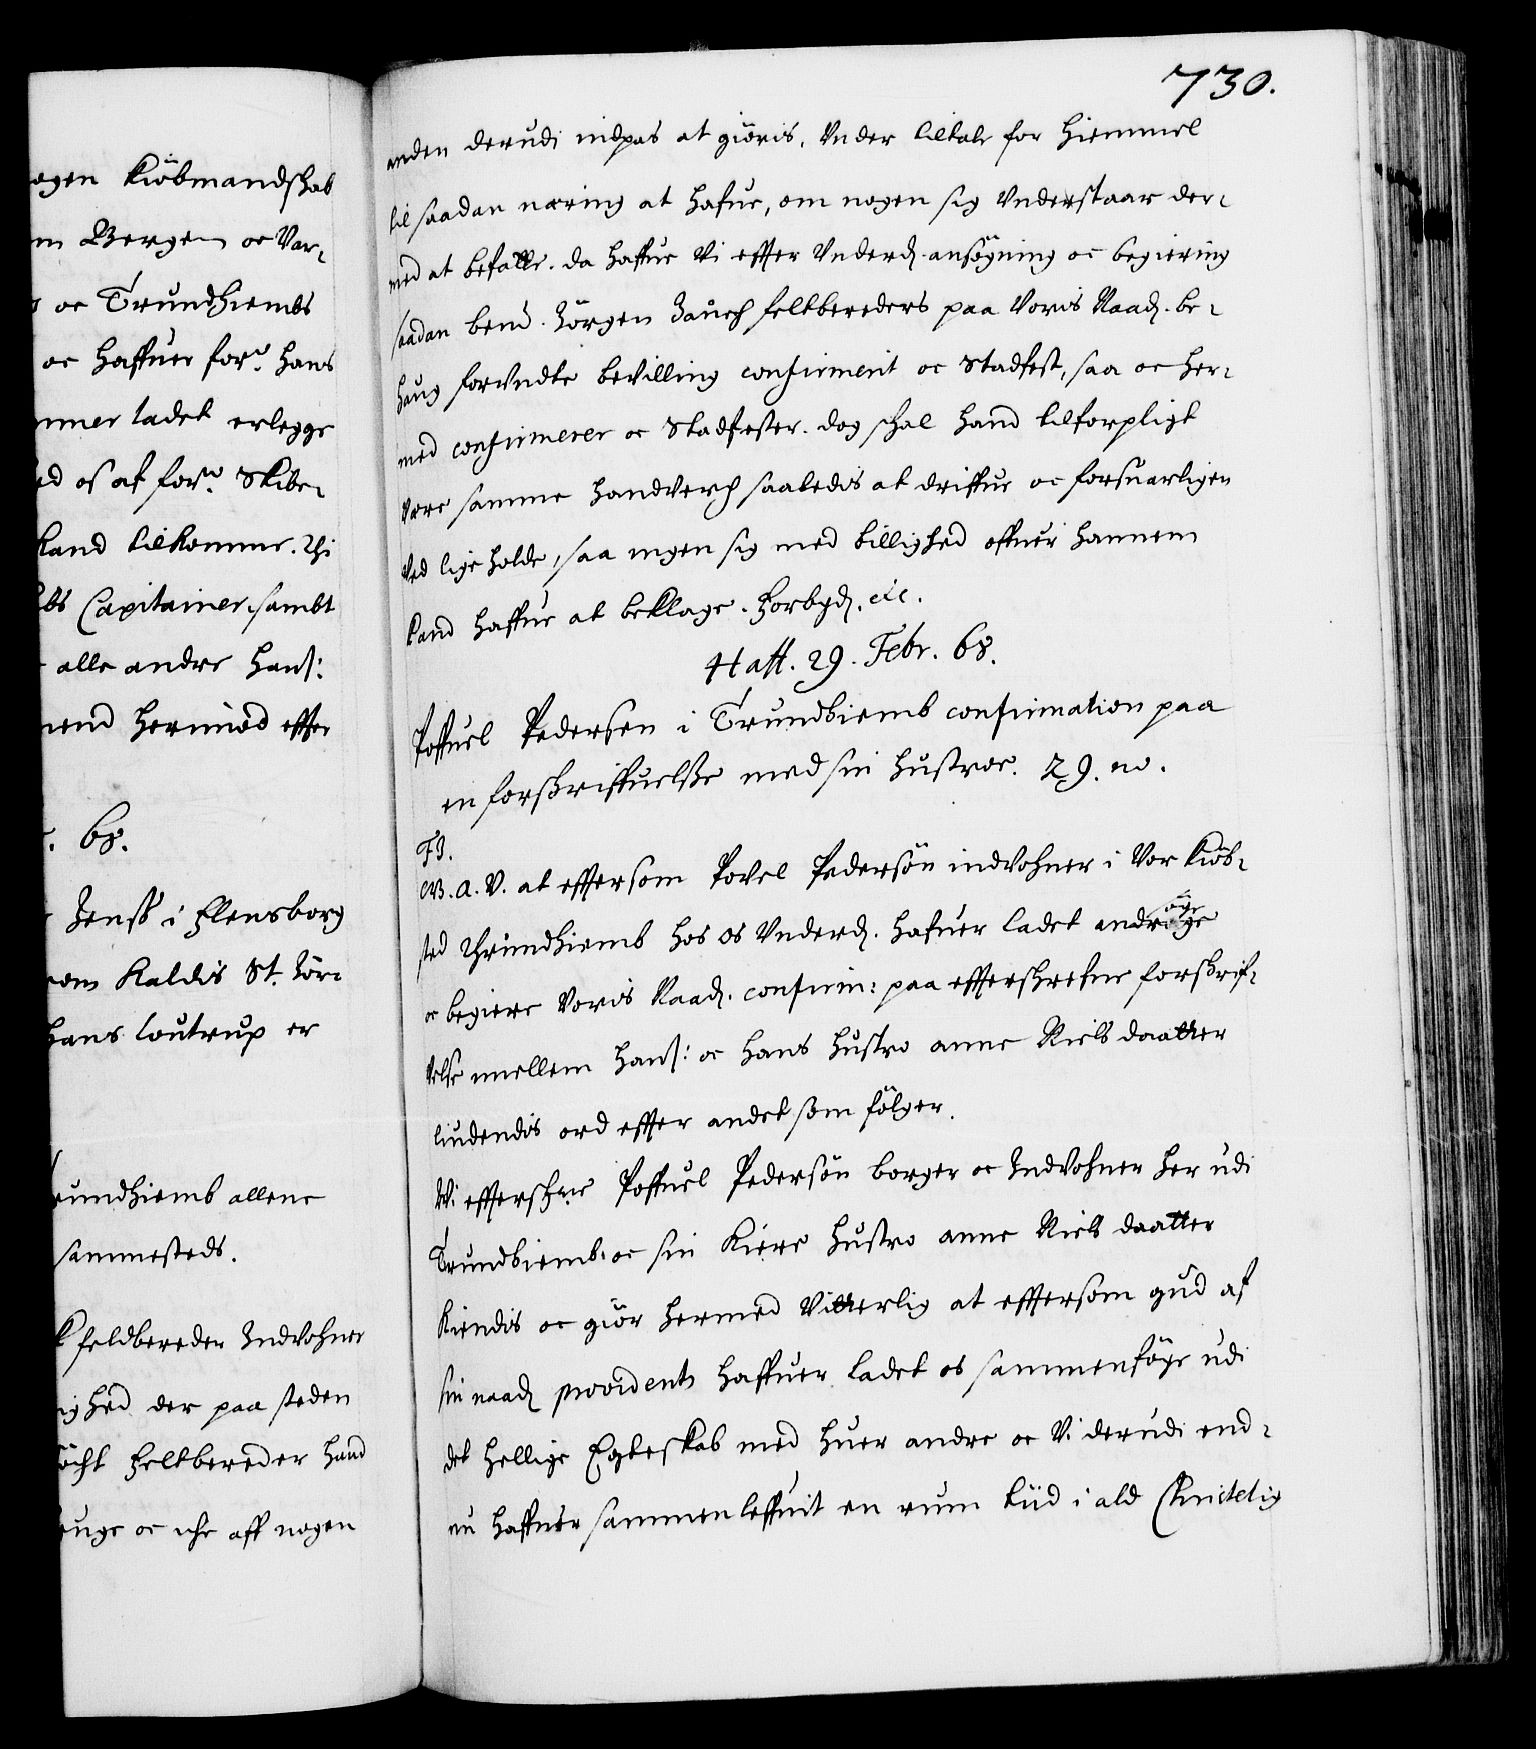 730.
ogen Kiöbmandschab
m Bergen oc Var-
oc Trundhiembs
oc haffuer for.ne hans
mmer ladet erlegge
ed os at for.ne Skibe-
kand tilkomme. Thi
bs Capitainer, sambt
alle andre hans:
mend hermed effter
68.
Jenss i Flensborg
som Kaldis St. Jör-
hans Loutrup er
rundhiemb allene
sammesteds.
feldbereder Indvohner
ighed der paa steden
Feltbereder hand
euge oc iche aff nogen
anden derudi indpas at giöris, Under tiltale for hiemmel
til saadan næring at hafue, om nogen sig Understaar der-
med at befatte. da haffue Vi effter Underd. ansögning oc begiering
saadan bem.te Jörgen Bauch feltbereders paa Voris Naad. be-
hag forundte bevilling confirmerit oc Stadfest, saa oc her-
med confirmerer oc Stadfester. dog schal hand tilforpligt
være samme handverch saaledis at driffue oc forsuarligen
Ved lige holde, saa ingen sig med billighed offuer hannem
kand haffue at beklage. Forbyd. etc.
Haff. 29. Febr. 68.
Poffuel Pedersen i Trundhiemb confirmation paa
en forskriffuelsse med sin hustroe. 29. no.
F3.
G. A. V. at efftersom Povel Pedersön indvohner i Vor Kiöb-
sted Thrundhiemb hos os Underd. hafuer ladet andrage
oc begiere Voris Naad. confirm: paa effterskrefne forskrif-
velse imellem hans: oc hans hustro anne Niels daatter
liudendis ord effter andet som fölger.
Wi effterschr.ne Poffuel Pedersön borger oc Indvohner her udi
Trundhiemb. oc sin Kiere hustro anne Niels daatter
Kiendis oc giör hermed Vitterlig at efftersom gud af
sin naad. providents haffuer ladet os sammenföge udi
det hellige Egteskab med huer andre oc Vi derudi end-
nu haffuer sammen leffuit en rum tiid i ald Christelig